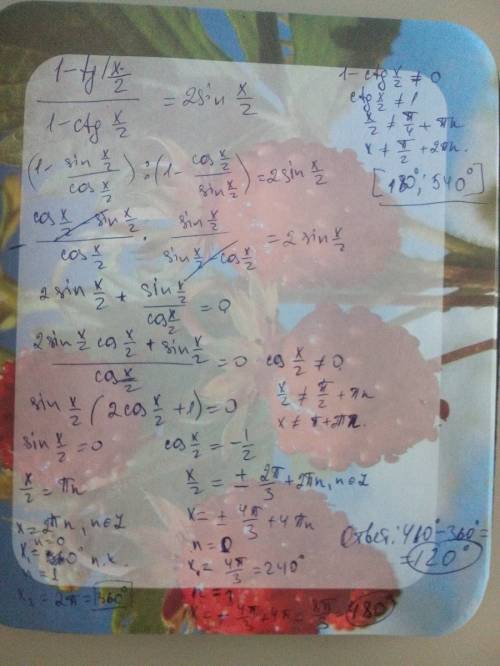 (1 - tg x/2) / (1 - ctg x/2) = 2sin x/2
1 - ctg x/2 ≠ 0
ctg x/2 ≠ 1
x/2 ≠ π/4 + πn
x ≠ π/2 + 2πn.
[180°; 540°]
(1 - sin x/2 / cos x/2) : (1 - cos x/2 / sin x/2) = 2sin x/2
- (cos x/2 - sin x/2) / cos x/2 · sin x/2 / (sin x/2 - cos x/2) = 2sin x/2
2sin x/2 + sin x/2 / cos x/2 = 0
(2sin x/2 cos x/2 + sin x/2) / cos x/2 = 0
cos x/2 ≠ 0
x/2 ≠ π/2 + πn
x ≠ π + 2πn.
sin x/2 (2cos x/2 + 1) = 0
sin x/2 = 0
x/2 = πn
x = 2πn, n∈Z
n = 0
n = 1
x₂ = 2π = 360°
cos x/2 = -1/2
x/2 = ± 2π/3 + 2πn, n∈Z
x = ± 4π/3 + 4πn
n = 0
x₁ = 4π/3 = 240°
n = 1
x = - 4π/3 + 4π = 8π/3 = 480°
Ответ: 480° - 360° =
= 120°